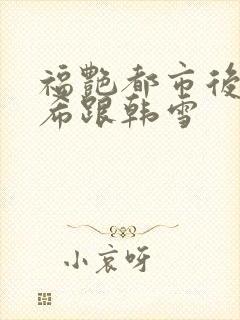 福艷都市後
希跟韩雪
小哀呀